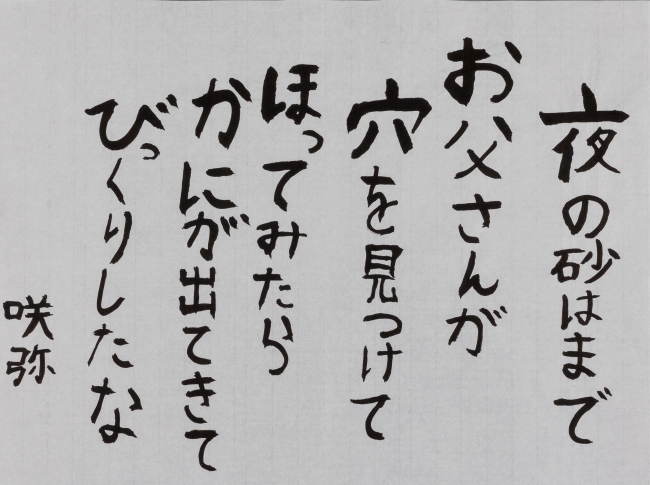 夜の砂はまで
お父さんが
穴を見つけて
ほってみたら
かにが出てきて
びっくりしたな
咲弥